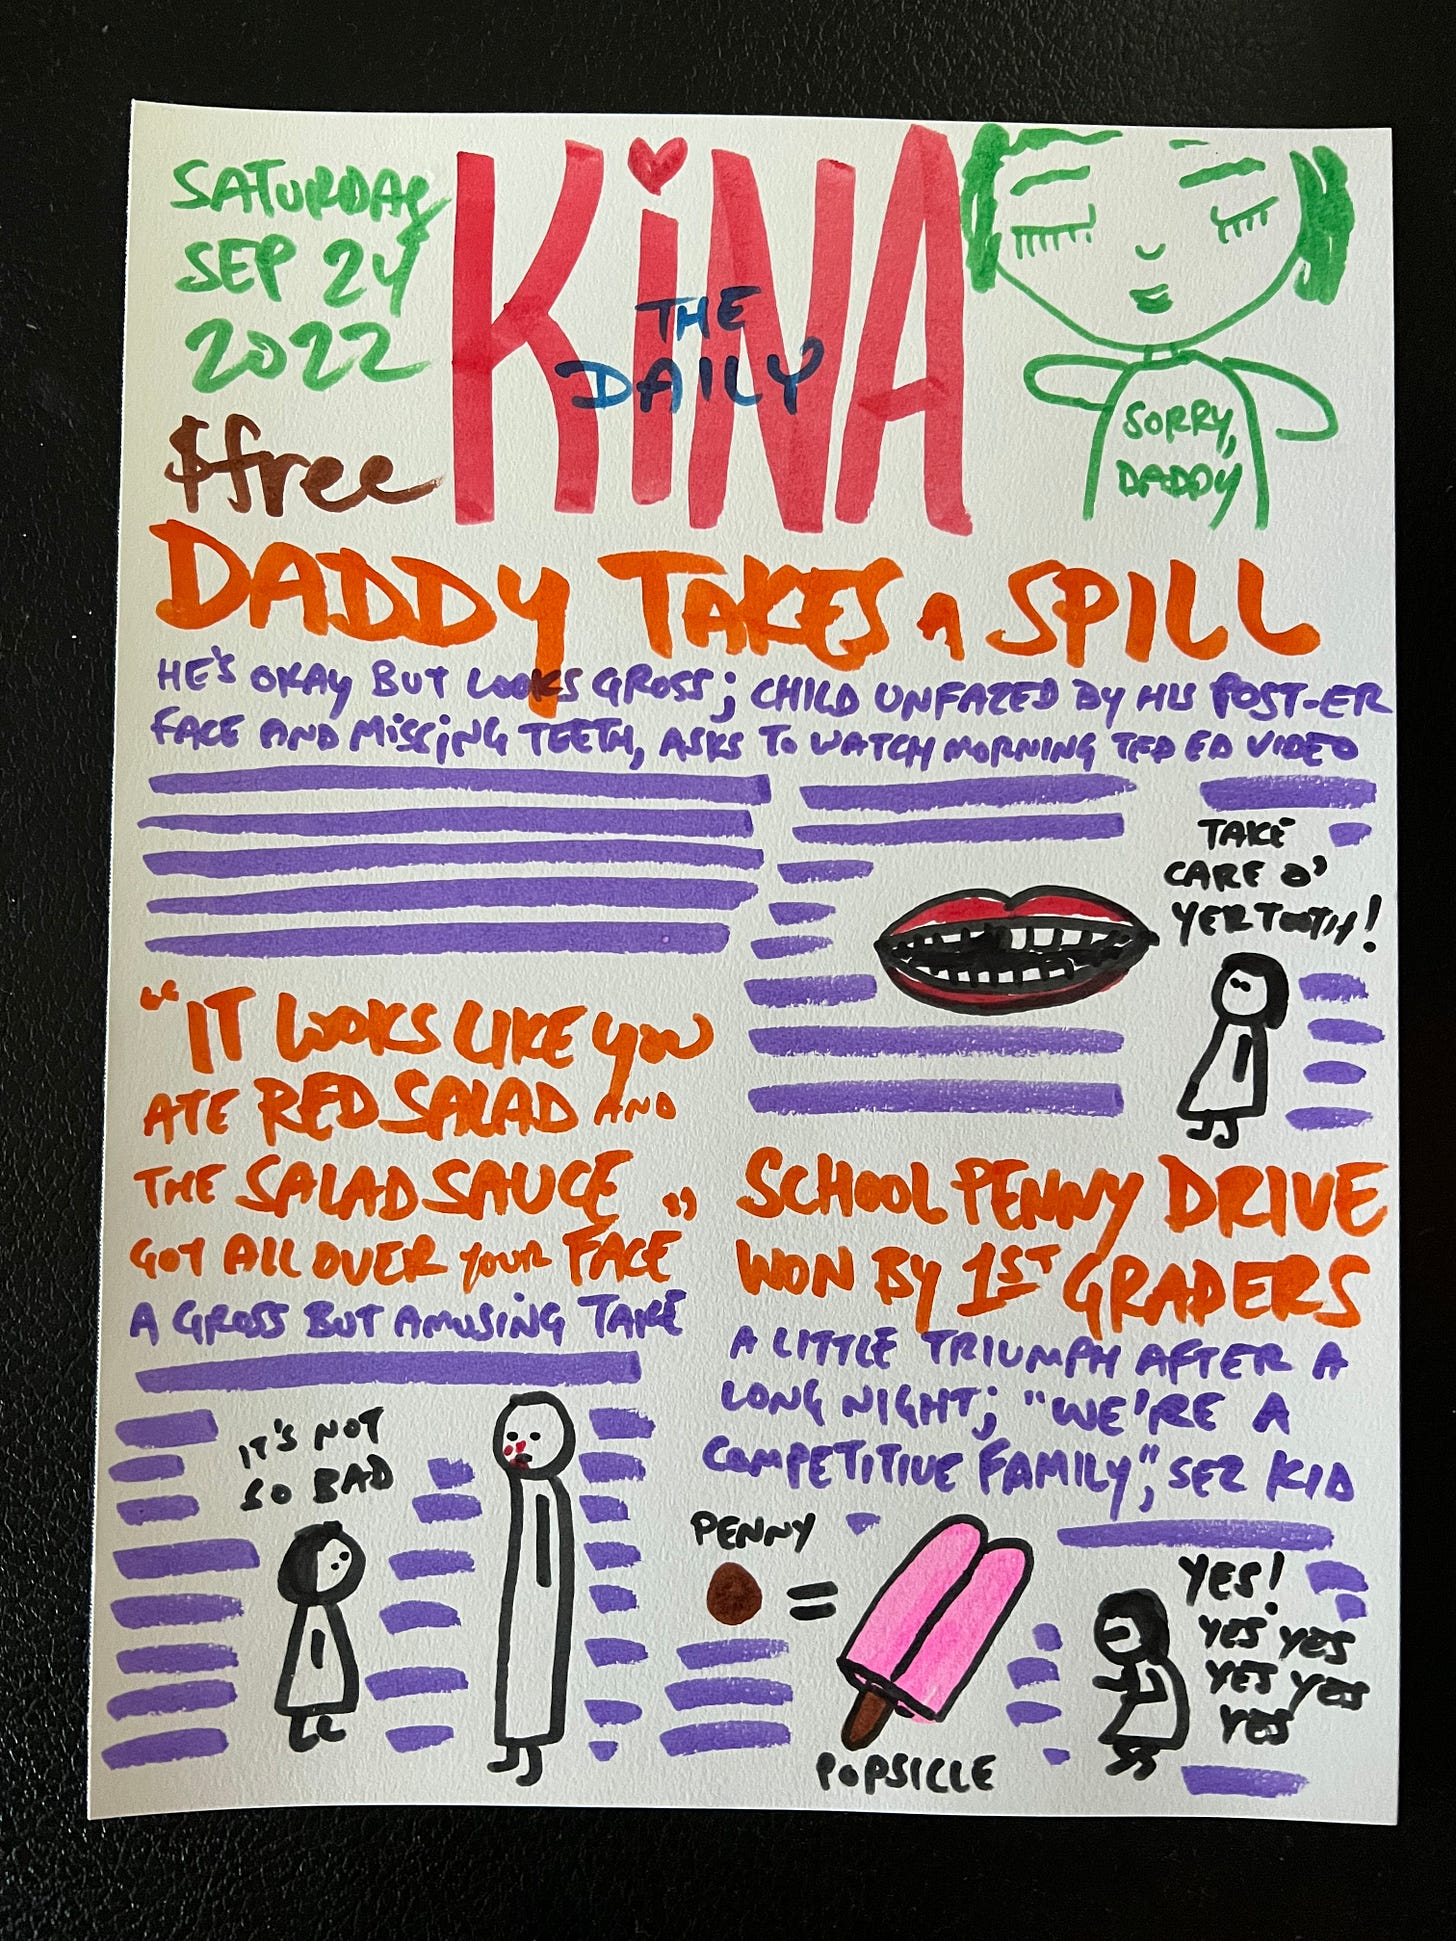 SATURDAY
SEP 24
2022
$free
THE
DAILY
KiNA
SORRY,
DADDY
DADDY TAKES A SPILL
HE'S OKAY BUT LOOKS GROSS; CHILD UNFAZED BY HIS POST-ER
FACE AND MISSING TEETH, ASKS TO WATCH MORNING TED ED VIDEO
TAKE
CARE O'
YER TOOTH!
"IT LOOKS LIKE YOU
ATE RED SALAD AND
THE SALAD SAUCE
GOT ALL OVER YOUR FACE"
A GROSS BUT AMUSING TAKE
IT'S NOT
SO BAD
SCHOOL PENNY DRIVE
WON BY 1ST GRADERS
A LITTLE TRIUMPH AFTER A
LONG NIGHT; "WE'RE A
COMPETITIVE FAMILY," SEZ KID
PENNY
=
POPSICLE
YES!
YES YES
YES YES
YES